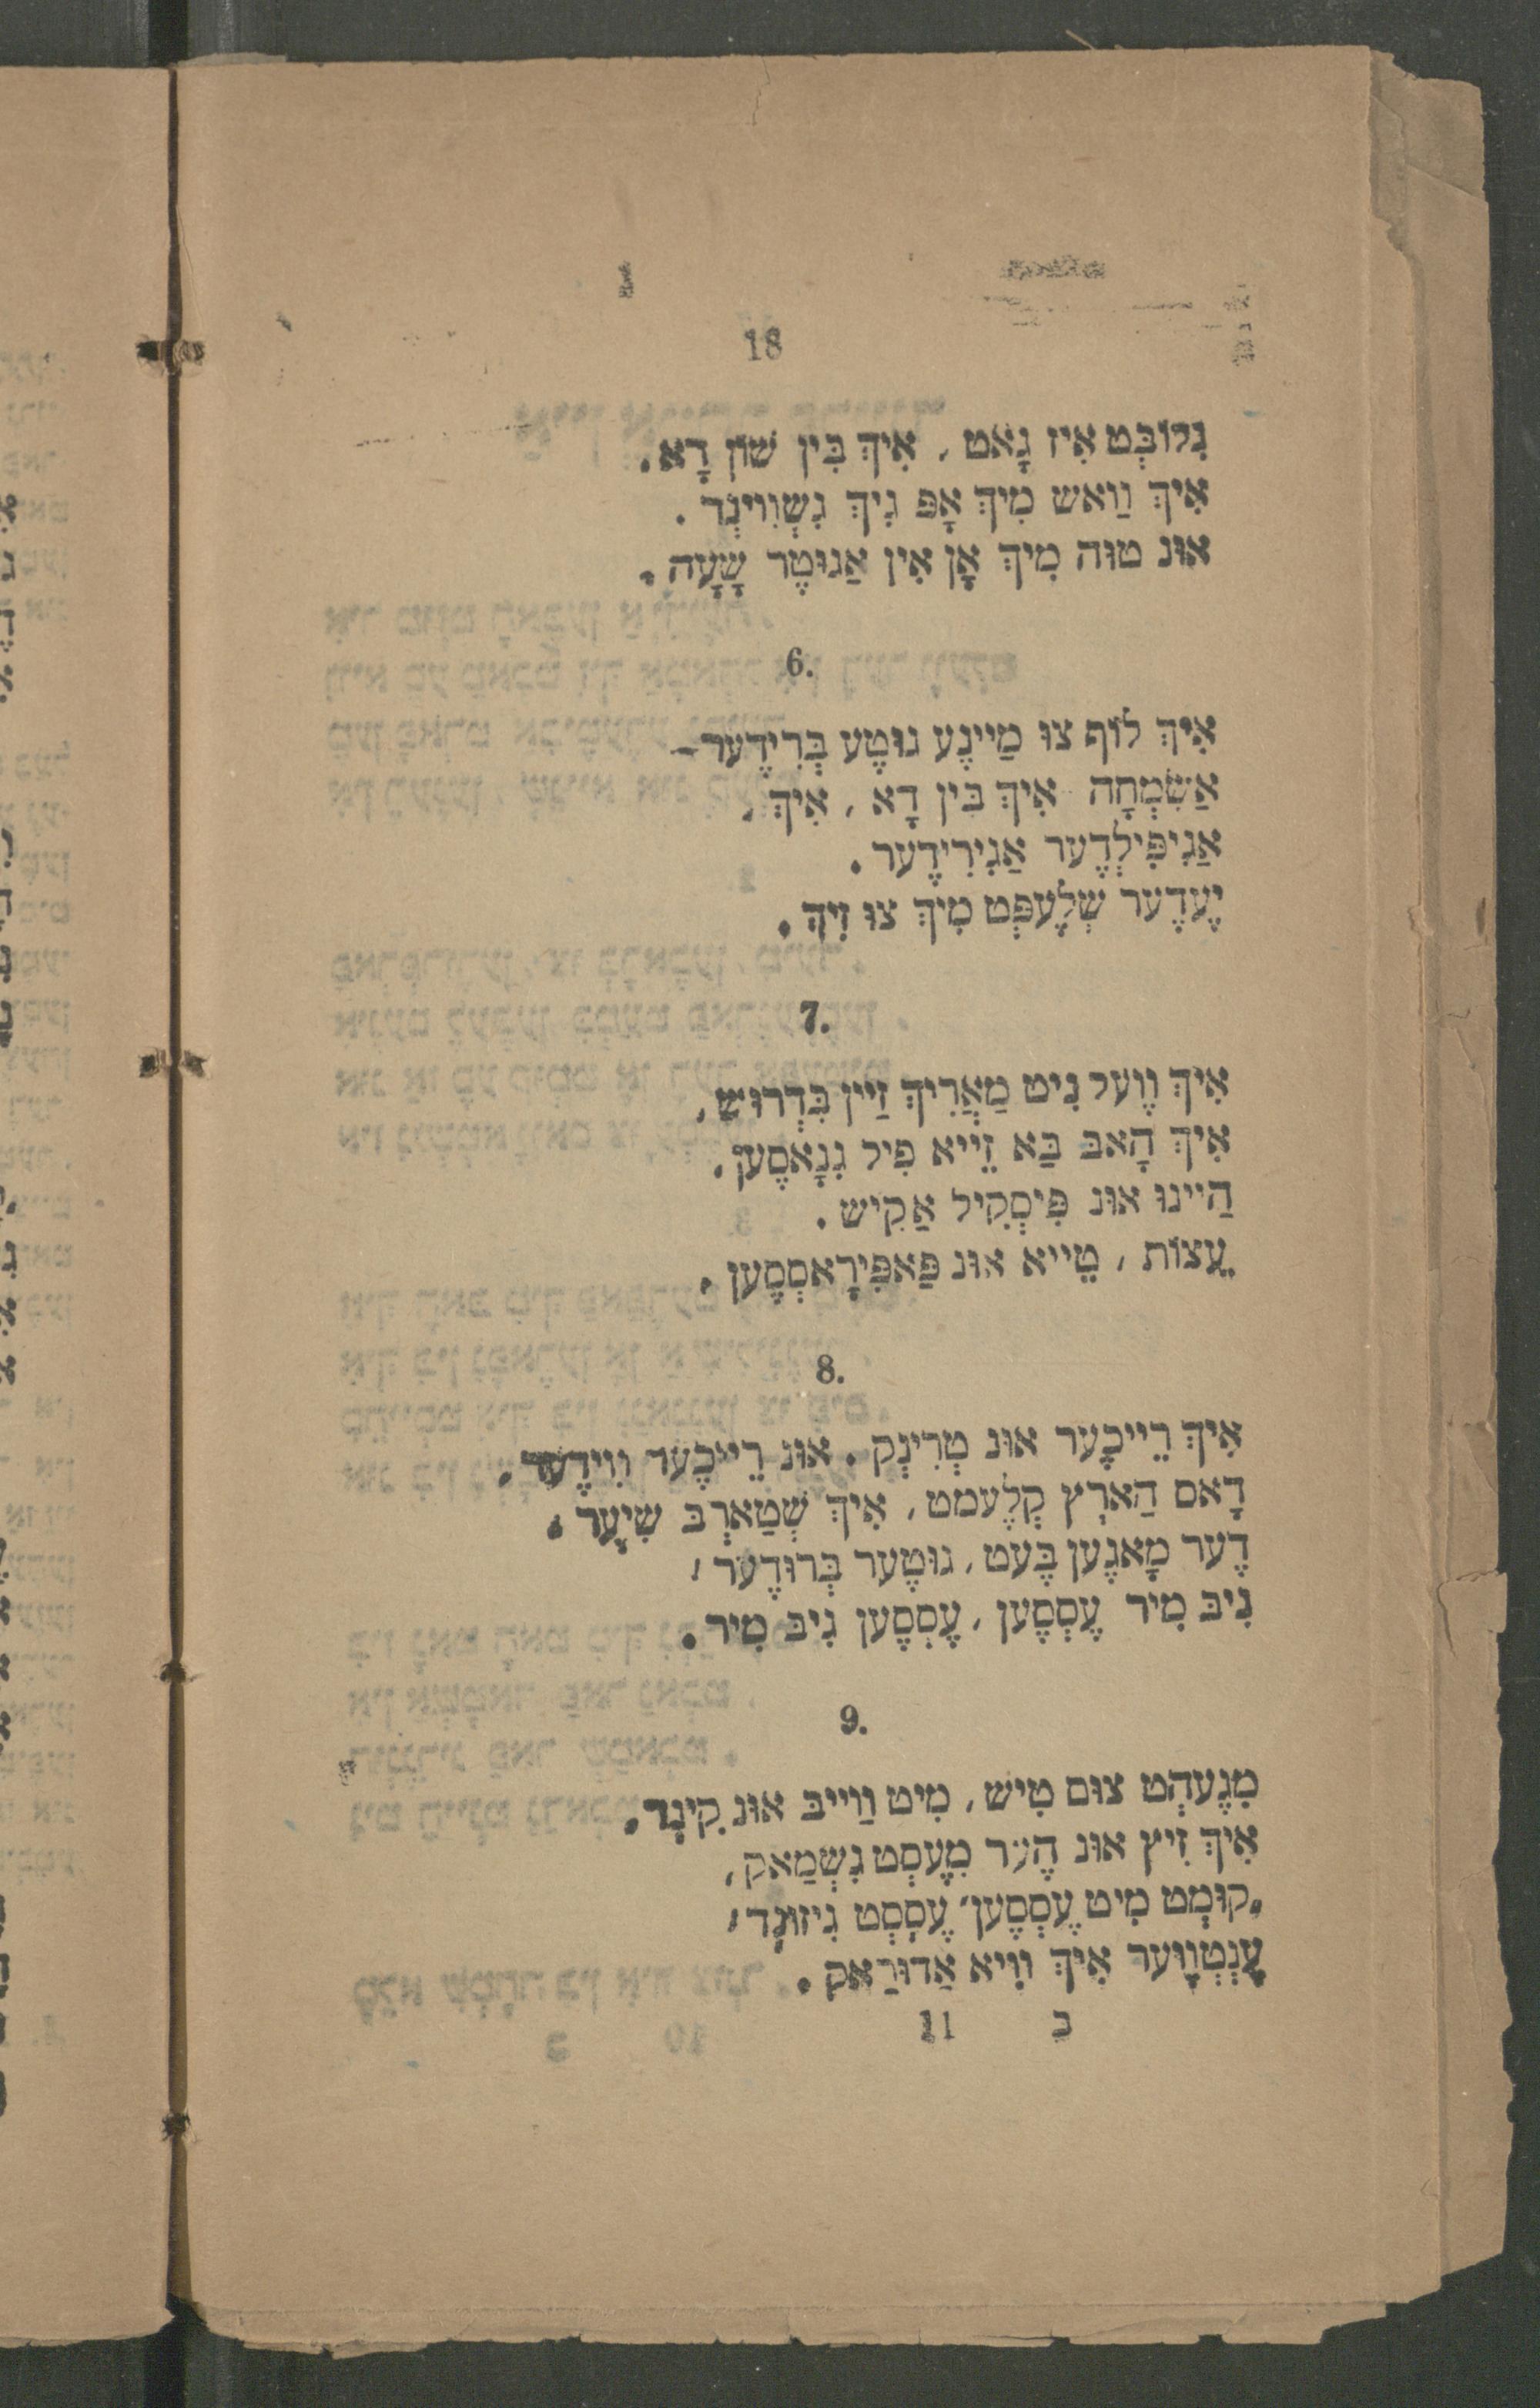 18
גִלוֹבְּט אִיז גָאט, אִיךְ בִּין שׁוֹן דָא.
אִיךְ וַואש מִיךְ אָפּ גִיךְ גִשְׁוִוינְד.
אוּנ טוּה מִיךְ אָן אִין אַגוּטֶר שָׁעָה.
6.
אִיךְ לוֹף צוּ מַיינֶע גוּטֶע בְּרִידֶער–
אַשִׂמְחָה אִיךְ בִּין דָא, אִיךְ,
אַגִיפִּילְדֶער אַגִירִידֶער.
יֶעדֶער שְׁלֶעפְּט מִיךְ צוּ זִיךְ.
7.
אִיךְ וֶועל נִיט מַאֲרִיךְ זַיין בִּדְרוּשׁ,
אִיךְ הָאבּ בַּא זֵייא פִיל גִנָאסֶען,
הַיינוּ אוּנ פִּיסְקִיל אַקִישׁ.
עֵצוֹת, טֵייא אוּנ פַּאפִּירָאסְסֶען.
8.
אִיךְ רֵייכֶער אוּנ טְרִינְק. אוּנ רֵייכֶער וִוידֶער,
דָאס הַארְץ קְלֶעמט, אִיךְ שְׁטַארְבּ שִׁיעֶר,
דֶער מָאגֶען בֶּעט, גוּטֶער בְּרוּדֶער,
גִיבּ מִיר עֶסְסֶען, עֶסְסֶען גִיבּ מִיר.
9.
מִגֶעהְט צוּם טִישׁ, מִיט וַוייבּ אוּנ קִינְד,
אִיךְ זִיץ אוּנ הֶער מִעֶסְט גִשְׁמַאק,
קוּמְט מִיט עֶסְסֶען, עֶסְסְט גִיזוּנְד,
עֶנְטְוֶוער אִיךְ וִויא אַדוּרַאק.
11 ב